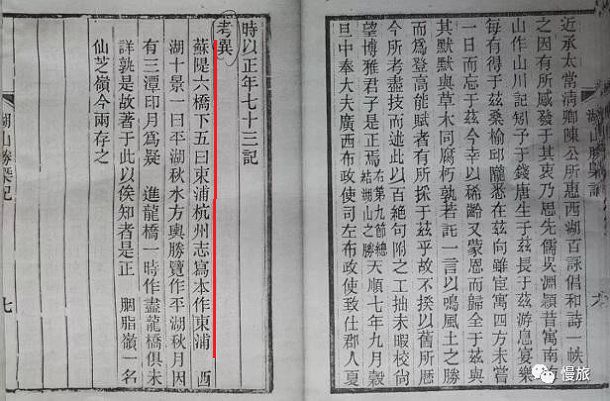 近承太常清卿陳公所惠西湖百詠倡和詩一帙
之因有所感發于其衷乃思先儒吳淵穎昔寓南
山作山川記矧予生于錢唐長于茲游息宴樂
每有得于茲桑榆邱隴悉在茲向雖宦寓四方未嘗
一日而忘于茲今幸以稀齡又蒙恩而歸全于茲與
其默默與草木同腐朽孰若託一言以鳴風土之勝
而為登高能賦者有所採于茲乎故不揆以舊所歷
今所考盡技而述此以百絕句附之工拙未暇校尚
望博雅君子是正焉 右第九節總結湖山之勝 天順七年九月穀
旦中奉大夫廣西布政使司左布政使致仕郡人夏
時以正年七十三記
考異
蘇隄六橋下五曰東浦杭州志寫本作東浦 西
湖十景一曰平湖秋水方輿勝覽作平湖秋月因
有三潭印月為疑 進龍橋一時作盡龍橋俱未
詳孰是故著于此以俟知者是正 胭脂嶺一名
仙芝嶺今兩存之
湖山勝槩記
七
慢旅